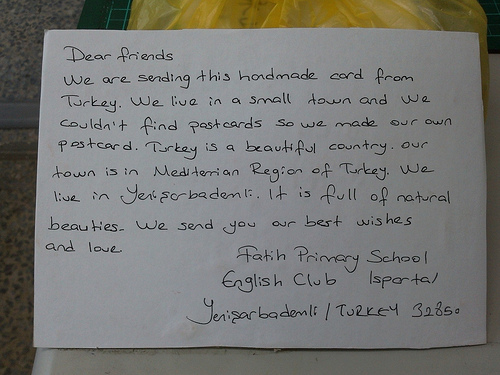 Dear friends
We are sending this handmade card from
Turkey. We live in a small town and we
couldn't find postcards so we made our own
postcard. Turkey is a beautiful country. our
town is in Mediterrian Region of Turkey. We
live in Yenişarbademli. It is full of natural
beauties. We send you our best wishes
and love
Fatih Primary School
English Club Isparta/
Yenişarbademli / TURKEY 32850